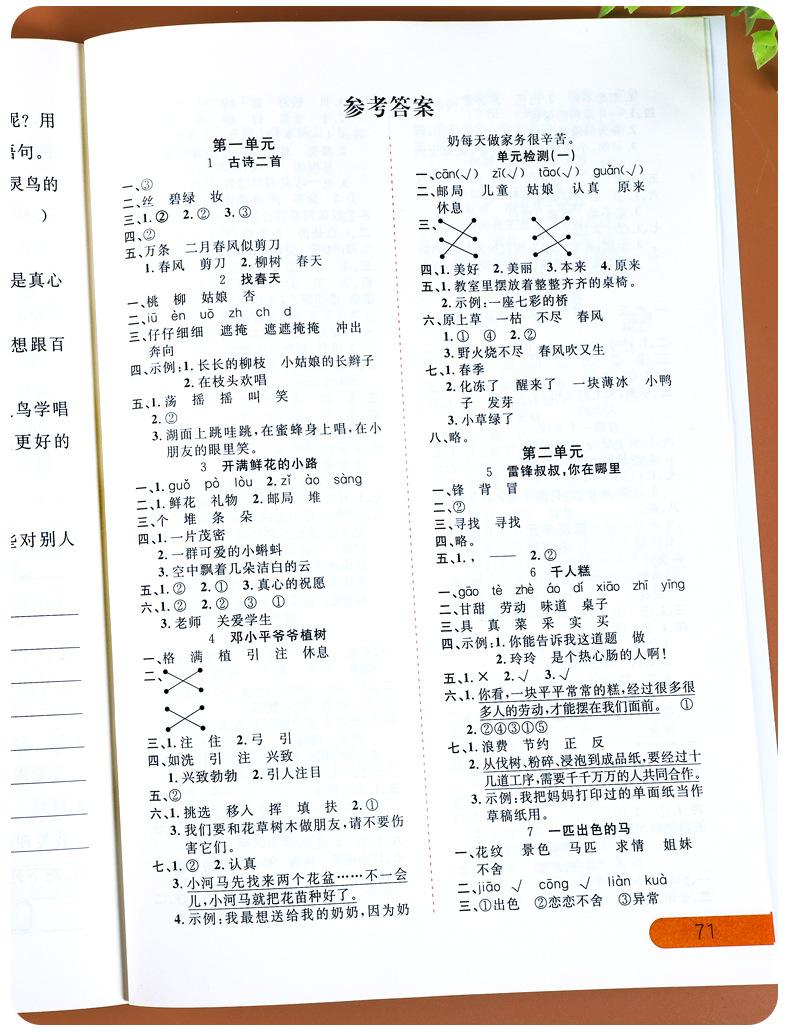 呢？用
语句。
灵鸟的
）
是真心
想跟百
鸟学唱
更好的
对别人
参考答案
第一单元
1 古诗二首
一、③
二、丝 碧绿 妆
三、1.② 2.② 3.③
四、②
五、万条 二月春风似剪刀
1.春风 剪刀 2.柳树 春天
2 找春天
一、桃 柳 姑娘 杏
二、iū èn uō zh ch d
三、仔仔细细 遮掩 遮遮掩掩 冲出
奔向
四、示例:1.长长的柳枝 小姑娘的长辫子
2.在枝头欢唱
五、1.荡 摇 摇 叫 笑
2.②
3.湖面上跳哇跳,在蜜蜂身上唱,在小
朋友的眼里笑。
3 开满鲜花的小路
一、1.guǒ pò lòu 2.zǐ ào sàng
二、1.鲜花 礼物 2.邮局 堆
三、个 堆 条 朵
四、1.一片茂密
2.一群可爱的小蝌蚪
3.空中飘着几朵洁白的云
五、1.② 2.① 3.真心的祝愿
六、1.② 2.② ③ ①
3.老师 关爱学生
4 邓小平爷爷植树
一、格 满 植 引 注 休息
二、
三、1.注 住 2.弓 引
四、如洗 引 注 兴致
1.兴致勃勃 2.引人注目
五、②
六、1.挑选 移人 挥 填 扶 2.①
3.我们要和花草树木做朋友,请不要伤
害它们。
七、1.② 2.认真
3.小河马先找来两个花盆……不一会
儿,小河马就把花苗种好了。
4.示例:我最想送给我的奶奶,因为奶
奶每天做家务很辛苦。
单元检测(一)
一、cān(✓) zǐ(✓) tāo(✓) guǎn(✓)
二、邮局 儿童 姑娘 认真 原来
休息
三、
四、1.美好 2.美丽 3.本来 4.原来
五、1.教室里摆放着整整齐齐的桌椅。
2.示例:一座七彩的桥
六、原上草 一枯 不尽 春风
1.① ④ 2.②
3.野火烧不尽 春风吹又生
七、1.春季
2.化冻了 醒来了 一块薄冰 小鸭
子 发芽
3.小草绿了
八、略。
第二单元
5 雷锋叔叔,你在哪里
一、锋 背 冒
二、②
三、寻找 寻找
四、略。
五、1., —— 2.②
6 千人糕
一、gāo tè zhè áo dí xiāo zhī yīng
二、甘甜 劳动 味道 桌子
三、具 真 菜 采 实 买
四、示例:1.你能告诉我这道题 做
2.玲玲 是个热心肠的人啊!
五、1.× 2.✓ 3.✓
六、1.你看,一块平平常常的糕,经过很多很
多人的劳动,才能摆在我们面前。 ①
2.②④③①⑤
七、1.浪费 节约 正 反
2.从伐树、粉碎、浸泡到成品纸,要经过十
几道工序,需要千千万万的人共同合作。
3.示例:我把妈妈打印过的单面纸当作
草稿纸用。
7 一匹出色的马
一、花纹 景色 马匹 求情 姐妹
不舍
二、jiāo ✓ cōng ✓ liàn kuà
三、①出色 ②恋恋不舍 ③异常
71